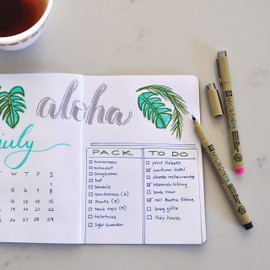 aloha
july
W T F S
1
5 6 7 8
12 13 14 15
19 20 21 22
26 27 28 29
PACK
sunscreen
swimsuit
sunglasses
hat
sandals
sundresses (2)
shorts (3)
tank tops (4)
toiletries
light sweater
TO DO
print tickets
confirm hotel
choose restaurants
research hiking
book tour
call Auntie Elaine
buy gifts
tidy house
MICRON